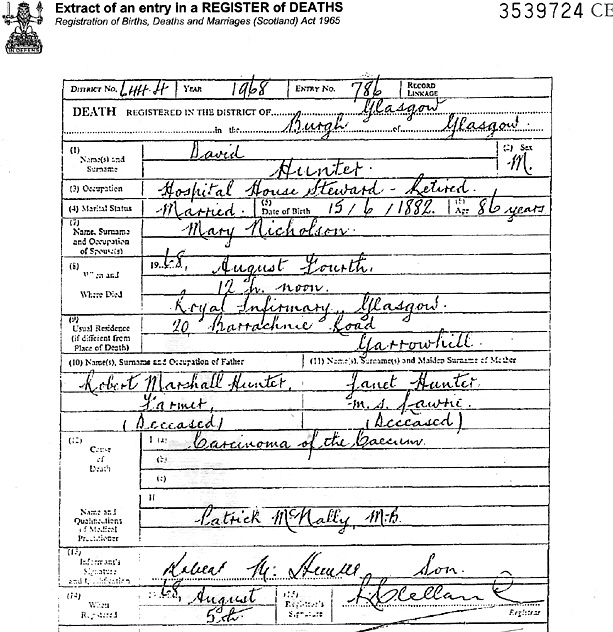 Extract of an entry in a REGISTER of DEATHS
Registration of Births, Deaths and Marriages (Scotland) Act 1965
3539724 CE
DISTRICT No. 644-4 YEAR 1968 ENTRY No. 786 RECORD LINKAGE
DEATH REGISTERED IN THE DISTRICT OF Glasgow
in the Burgh of Glasgow.
(1) Name(s) and Surname David
Hunter.
(2) Sex M.
(3) Occupation Hospital House Steward - Retired.
(4) Marital Status Married. (5) Date of Birth 15/6/1882. Age 86 years
(7) Name, Surname and Occupation of Spouse(s) Mary Nicholson.
(8) When and Where Died 1968, August Fourth,
12 h. noon.
Royal Infirmary, Glasgow.
(9) Usual Residence (if different from Place of Death) 20, Barrachnie Road
Garrowhill.
(10) Name(s), Surname and Occupation of Father (11) Name(s), Surname(s) and Maiden Surname of Mother
Robert Marshall Hunter, Janet Hunter
Farmer, m.s. Lawrie.
(Deceased) (Deceased)
(12) Cause of Death I (a) Carcinoma of the Caecum.
(b)
(c)
II
Name and Qualifications of Medical Practitioner Patrick McNally, M.B.
(13) Informant's Signature and Qualification Robert M. Hunter Son.
(14) When Registered 1968, August
5th
(15) Registrar's Signature Registrar